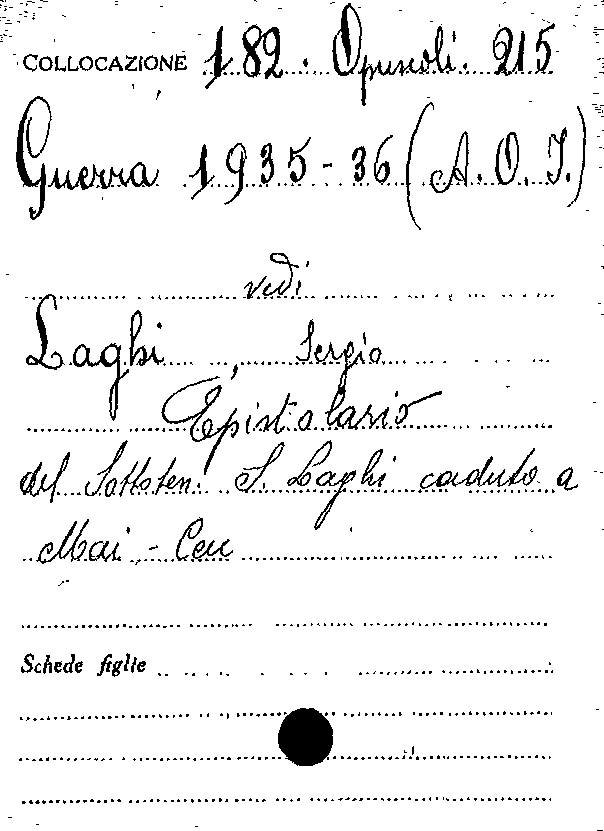 COLLOCAZIONE 182. Opuscoli. 215
Guerra 1935-36 (A. O. I.)
vedi
Laghi, Sergio
Epistolario
del Sottoten. S. Laghi caduto a
Mai-Ceu
Schede figlie